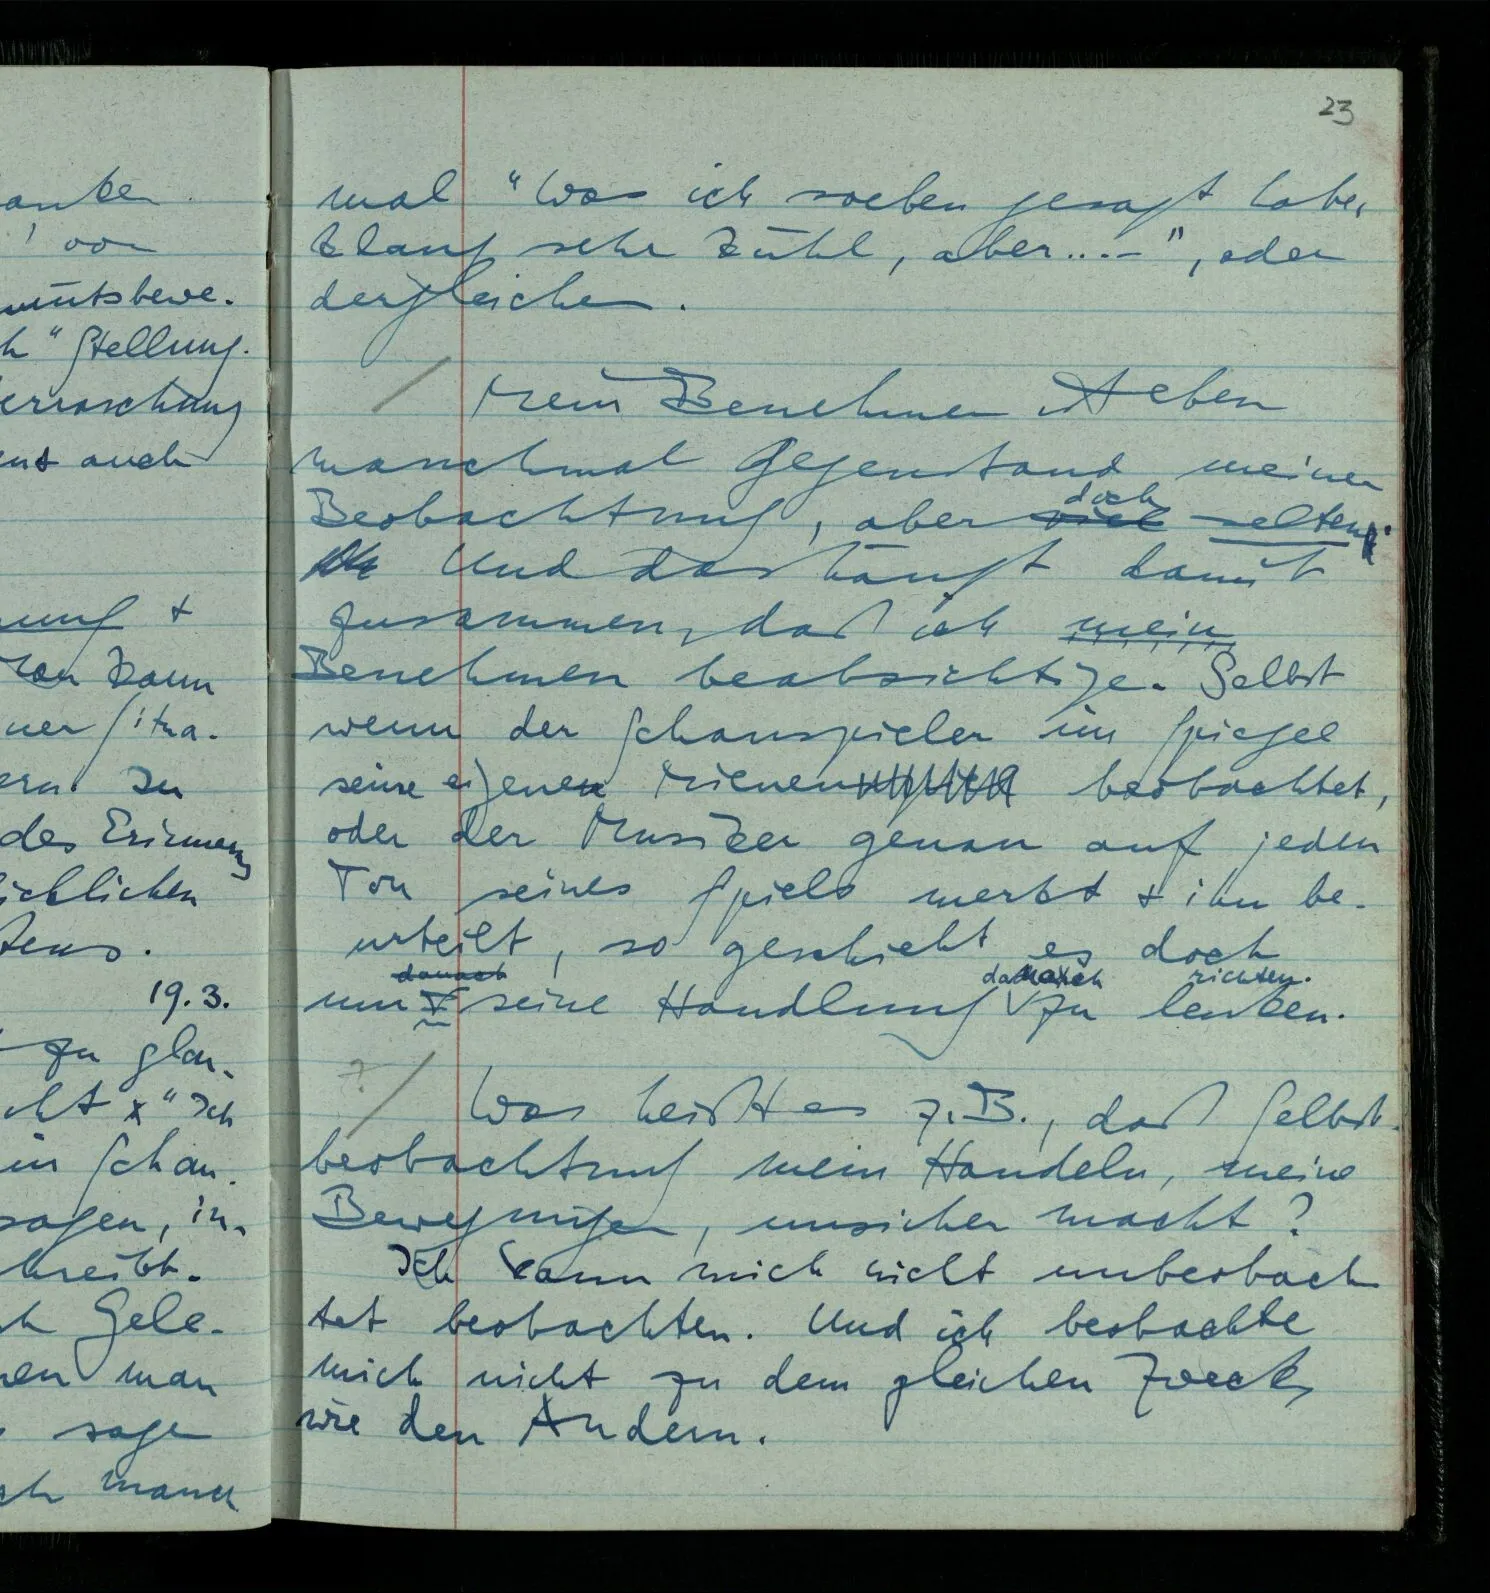 anken
, von
mütsbewe-
h" Stellung.
erraschung
ent auch
nung &
Man kann
ner Situa-
ern. In
des Erinnerns
ichlichen
tens.
19.3.
zu glau-
cht x "Ich
in Schau-
sagen, in-
hreibt.
ch Gele-
nen man
sage
ch manch
23
mal "Was ich soeben gesagt habe,
klang sehr kühl, aber....–", oder
dergleichen.
/ Mein Benehmen ist eben
manchmal Gegenstand meiner
doch
Beobachtung, aber viel selten.
Und das hängt damit
zusammen, daß ich mein
Benehmen beabsichtige. Selbst
wenn der Schauspieler im Spiegel
seine eigenen Mienen beobachtet,
oder der Musiker genau auf jeden
Ton seines Spiels merkt & ihn be-
urteilt, so geschieht es doch
danach danach richten.
um seine Handlung zu lenken.
? / Was heißt es z.B., daß Selbst-
beobachtung mein Handeln, meine
Bewegungen, unsicher macht?
Ich kann mich nicht unbeobach
tet beobachten. Und ich beobachte
mich nicht zu dem gleichen Zweck,
wie den Andern.